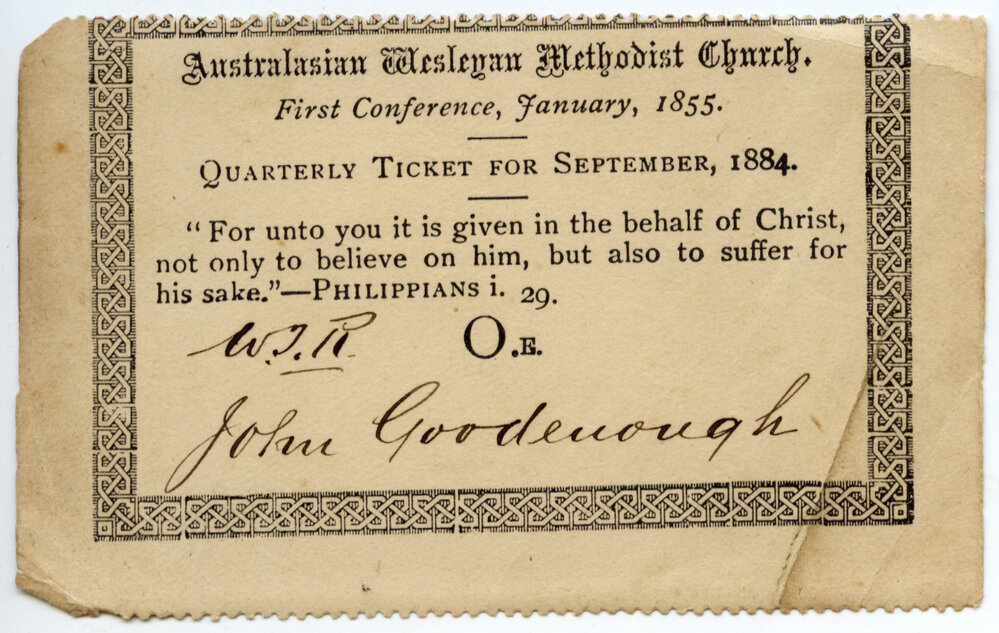 Australasian Wesleyan Methodist Church.
First Conference, January, 1855.
QUARTERLY TICKET FOR SEPTEMBER, 1884.
“For unto you it is given in the behalf of Christ,
not only to believe on him, but also to suffer for
his sake.”—PHILIPPIANS i. 29.
W.J.R. O.E.
John Goodenough